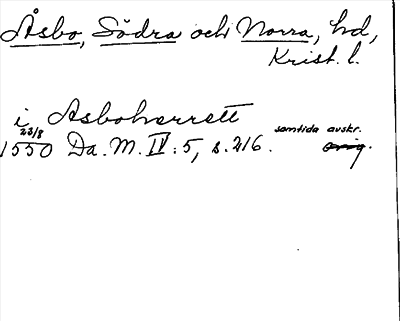 Åsbo, Södra och Norra, hd,
Krist. l.
i Asboherrett
23/8 samtida avskr.
1550 Da. M. IV: 5, s. 216. orig.